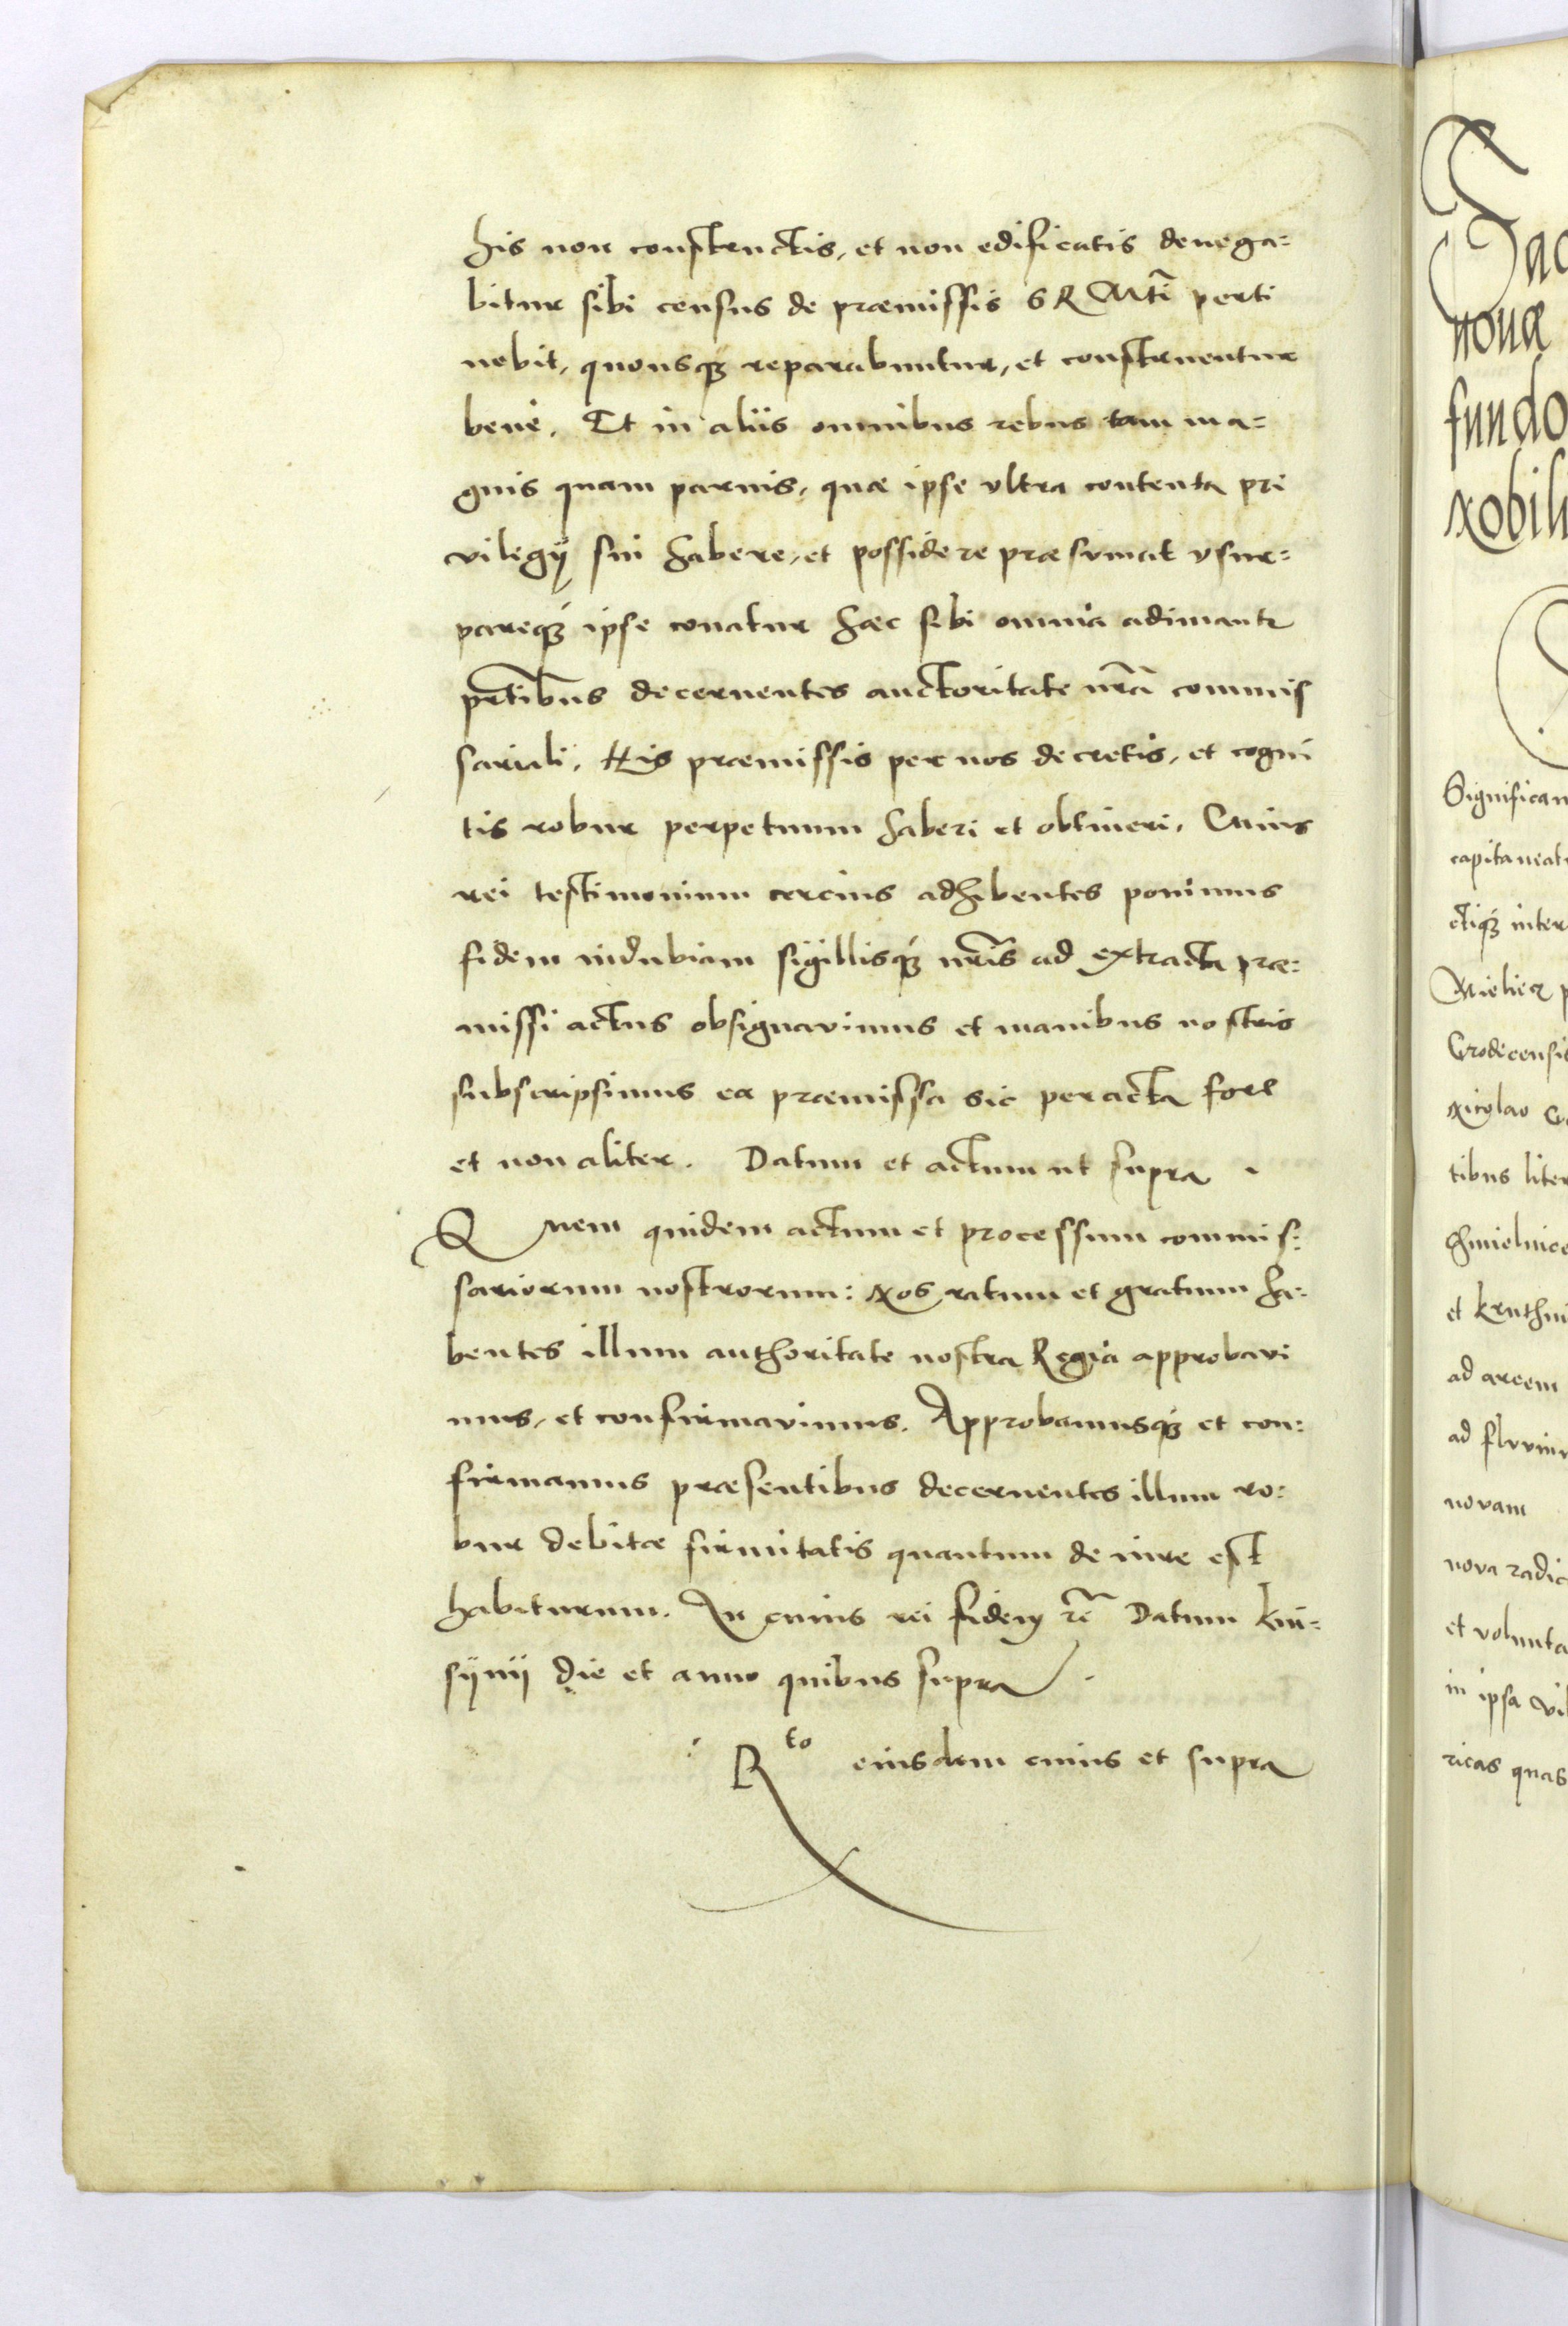 his non constructis, et non edificatis denega=
bitur sibi census de præmissis S R Mti perti
nebit, quousq; reparabuntur, et construentur
bene. Et in aliis omnibus rebus tam ma=
gnis quam paruis, quæ ipse vltra contenta pri
vilegij sui habere, et possidere præsumat vsur=
pareq; ipse conatur hæc sibi omnia adimantr
pntibus decernentes auctoritate nra commis
sariali. His præmissis per nos decretis, et cogni
tis robur perpetuum haberi et obtineri. Cuius
rei testimonium cercius adhibentes ponimus
fidem indubiam sigillisq; nris ad extracta præ=
missi actus obsignavimus et manibus nostris
subscripsimus ea præmissa sic peracta fore
et non aliter. Datum et actum ut supra.
Quem quidem actum et processum commis:
sariorum nostrorum: Nos ratum et gratum ha:
bentes illum authoritate nostra Regia approbavi
mus, et confirmavimus. Approbamusq; et con:
firmamus præsentibus decernentes illum ro:
bur debitæ firmitatis quantum de iure est
habiturum. In cuius rei fidem rc Datum Kni=
sijnij die et anno quibus supra.
Rto eiusdem cuius et supra
nonæ
fundo
Nobili
Significam
capitaneat
ctiq; inter
Mieliecz p
Grodecensis
Nicolao
tibus liter
Chmielnice
et
ad arcem
ad fluviu
novam
nova radic
et volunta
in ipsa vil
ricas quas